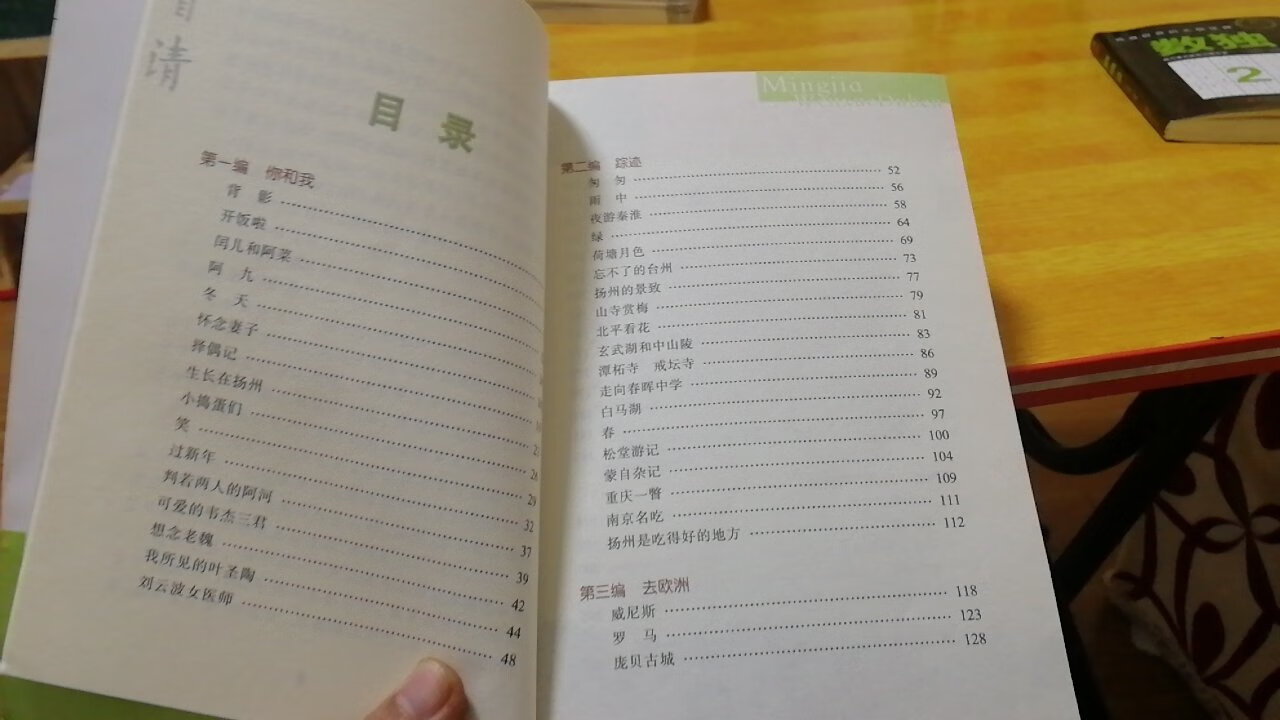 清
目 录
第一编 你和我
背 影
开饭啦
闰儿和阿菜
阿 九
冬 天
怀念妻子
择偶记
生长在扬州
小捣蛋们 28
笑 29
过新年 32
判若两人的阿河 37
可爱的韦杰三君 39
想念老魏 42
我所见的叶圣陶 44
刘云波女医师 48
Mingjia
第二编 踪迹
匆 匆 52
雨 中 56
夜游秦淮 58
绿 64
荷塘月色 69
忘不了的台州 73
扬州的景致 77
山寺赏梅 79
北平看花 81
玄武湖和中山陵 83
潭柘寺 戒坛寺 86
走向春晖中学 89
白马湖 92
春 97
松堂游记 100
蒙自杂记 104
重庆一瞥 109
南京名吃 111
扬州是吃得好的地方 112
第三编 去欧洲
威尼斯 118
罗 马 123
庞贝古城 128
数独
2